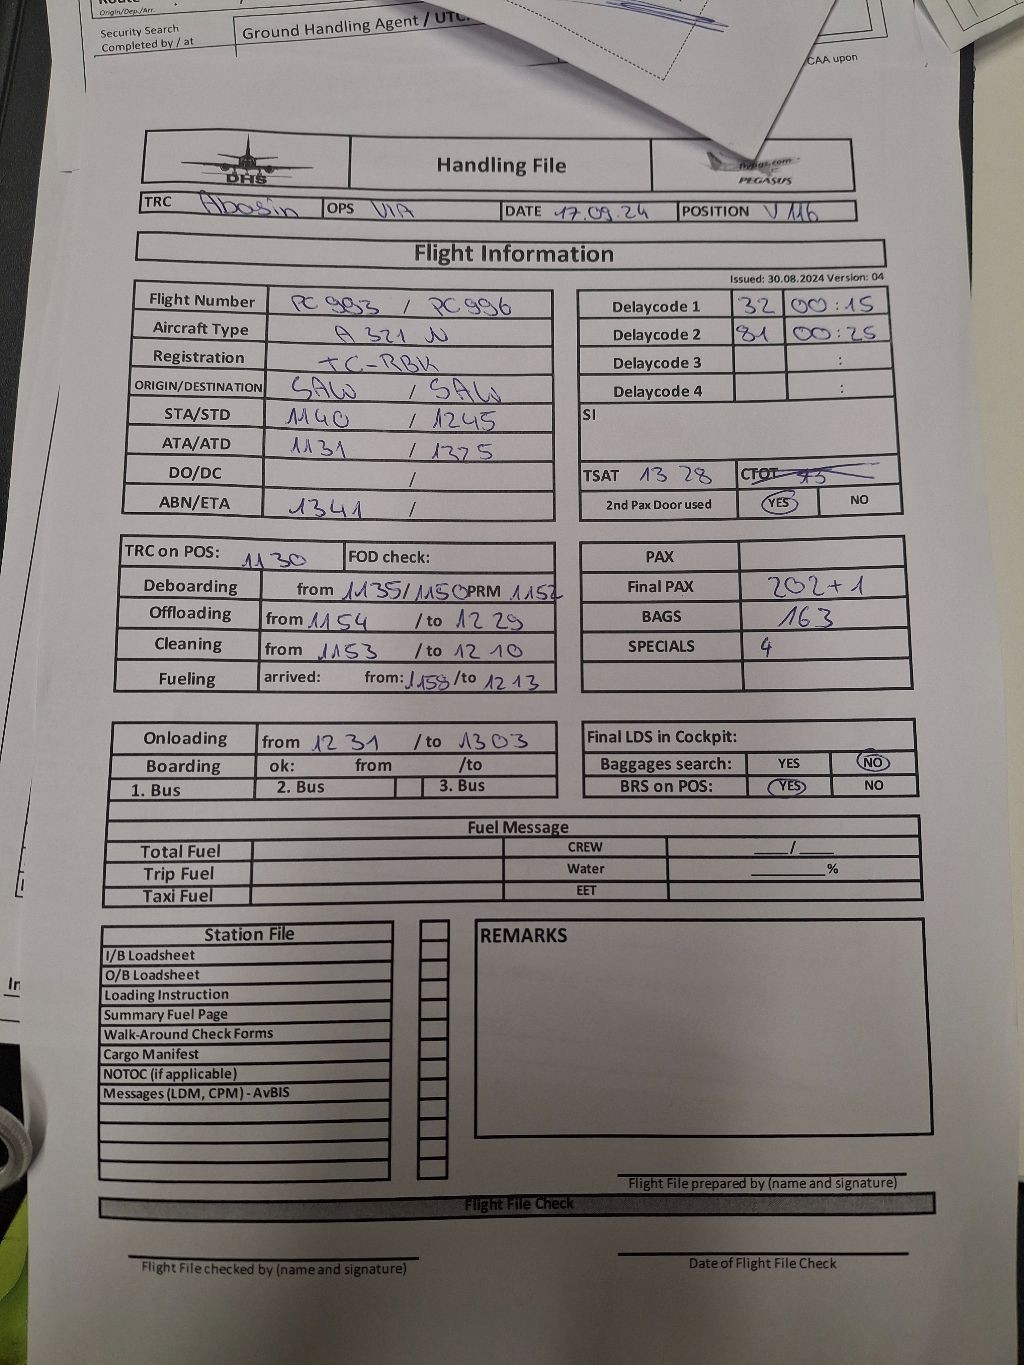 Origin/Dep./Arr.
Security Search
Completed by / at
Ground Handling Agent / UTC
CAA upon
DHS
Handling File
flypgs.com
PEGASUS
TRC Abasin OPS VIA DATE 17.09.24 POSITION V 116
Flight Information
Issued: 30.08.2024 Version: 04
Flight Number PC 993 / PC 996
Aircraft Type A 321 N
Registration TC-RBK
ORIGIN/DESTINATION SAW / SAW
STA/STD 1140 / 1245
ATA/ATD 1131 / 1325
DO/DC /
ABN/ETA 1341 /
Delaycode 1 32 00:15
Delaycode 2 81 00:25
Delaycode 3 :
Delaycode 4 :
SI
TSAT 13 28 CTOT
2nd Pax Door used YES NO
TRC on POS: 1130 FOD check:
Deboarding from 1135/1150 PRM 1152
Offloading from 1154 / to 12 29
Cleaning from 1153 / to 12 10
Fueling arrived: from: 1158 /to 12 13
PAX
Final PAX 202+1
BAGS 163
SPECIALS 4
Onloading from 12 31 / to 1303
Boarding ok: from /to
1. Bus 2. Bus 3. Bus
Final LDS in Cockpit:
Baggages search: YES NO
BRS on POS: YES NO
Fuel Message
Total Fuel CREW ____/____
Trip Fuel Water ________%
Taxi Fuel EET
Station File
I/B Loadsheet
O/B Loadsheet
Loading Instruction
Summary Fuel Page
Walk-Around Check Forms
Cargo Manifest
NOTOC (if applicable)
Messages (LDM, CPM) - AvBIS
REMARKS
Flight File prepared by (name and signature)
Flight File Check
Flight File checked by (name and signature)
Date of Flight File Check